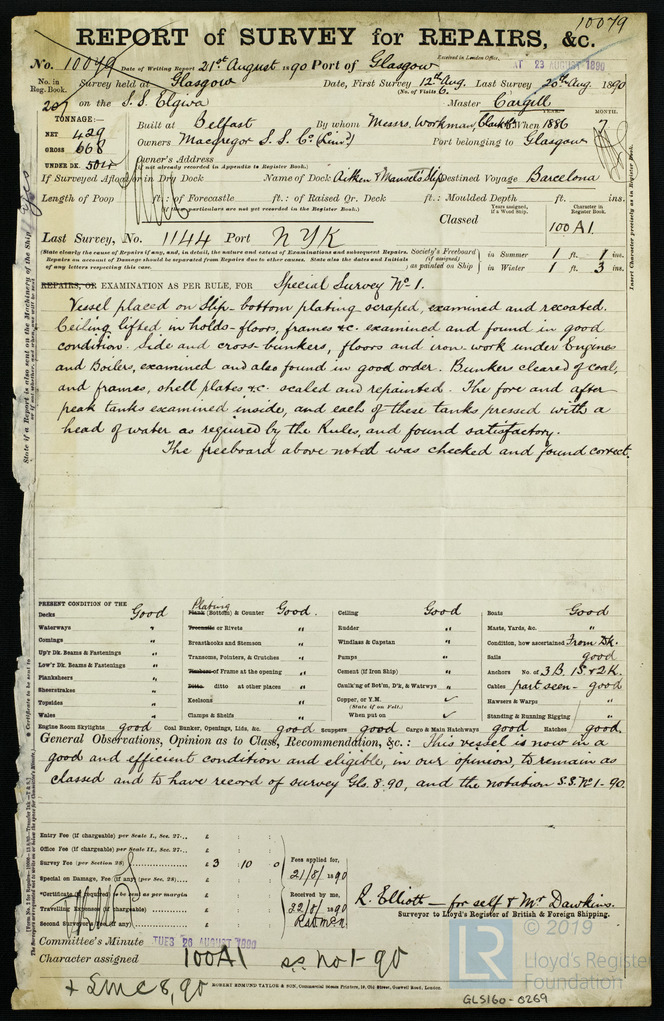 10079
REPORT of SURVEY for REPAIRS, &c.
No. 10079 Date of Writing Report 21st August 1890 Port of Glasgow Received in London Office, SAT 23 AUGUST 1890
No. in Reg. Book. Survey held at Glasgow Date, First Survey 12th Aug. Last Survey 20th Aug. 1890
(No. of Visits 6.
207 on the S.S. Elgwa Master Cargill
TONNAGE:— Built at Belfast By whom Messrs. Workman, Clark & Co When 1886 MONTH. 7
NET 429
GROSS 668 Owners Macgregor S. S. Co. (Lim'd) Port belonging to Glasgow
UNDER DK. 504 Owner's Address
(if not already recorded in Appendix to Register Book.)
If Surveyed Afloat or in Dry Dock Name of Dock Aitken & Mansel's Slip Destined Voyage Barcelona
Length of Poop ft.: of Forecastle ft.: of Raised Qr. Deck ft.: Moulded Depth ft. ins.
(If these particulars are not yet recorded in the Register Book.)
Years assigned, if a Wood Ship. Character in Register Book.
Classed 100A1
Last Survey, No. 1144 Port NYK
(State clearly the cause of Repairs if any, and, in detail, the nature and extent of Examinations and subsequent Repairs.
Repairs on account of Damage should be separated from Repairs due to other causes. State also the dates and Initials
of any letters respecting this case.
Society's Freeboard (if assigned) as painted on Ship in Summer 1 ft. 1 ins.
in Winter 1 ft. 3 ins.
REPAIRS, OR EXAMINATION AS PER RULE, FOR Special Survey No. 1.
Vessel placed on Slip - bottom plating scraped, examined and recoated.
Ceiling lifted in holds - floors, frames &c. examined and found in good
condition. Side and cross-bunkers, floors and iron work under Engines
and Boilers, examined and also found in good order. Bunkers cleared of coal,
and frames, shell plates &c. scaled and repainted. The fore and after
peak tanks examined inside, and each of these tanks pressed with a
head of water as required by the Rules, and found satisfactory.
The freeboard above noted was checked and found correct.
PRESENT CONDITION OF THE
Decks Good
Waterways "
Comings "
Up'r Dk. Beams & Fastenings "
Low'r Dk. Beams & Fastenings "
Planksheers "
Sheerstrakes "
Topsides "
Wales "
Plating
Plank (Bottom) & Counter Good.
Treenails or Rivets "
Breasthooks and Stemson "
Transoms, Pointers, & Crutches "
Timbers or Frames at the opening "
Ditto. ditto at other places "
Keelsons "
Clamps & Shelfs "
Ceiling Good
Rudder "
Windlass & Capstan "
Pumps "
Cement (if Iron Ship) "
Caulk'ng of Bot'm, D'k, & Waterwys "
Copper, or Y.M.
(State if on Felt.)
When put on
Boats Good
Masts, Yards, &c. "
Condition, how ascertained From Dk.
Sails good
Anchors No. of 3B. 1S. & 2K.
Cables part seen - good
Hawsers & Warps "
Standing & Running Rigging "
Engine Room Skylights good Coal Bunker, Openings, Lids, &c. good Scuppers good Cargo & Main Hatchways good Hatches good.
General Observations, Opinion as to Class, Recommendation, &c.: This vessel is now in a
good and efficient condition and eligible, in our opinion, to remain as
classed and to have record of survey Gls. 8.90, and the notation S.S. No. 1-90.
Entry Fee (if chargeable) per Scale I., Sec. 27... £ : :
Office Fee (if chargeable) per Scale II., Sec. 27... £ : :
Survey Fee (per Section 28) £ 3 10 0
Special on Damage, Fee (if any) (per Sec. 28) £
*Certificate (if required) to be sent as per margin
Travelling Expenses (if chargeable) £
Second Surveyor's Fee (if any) £
Fees applied for,
21/8/1890
Received by me,
22/8/1890
R. Elliott — for self & Mr Dawkins.
Surveyor to Lloyd's Register of British & Foreign Shipping.
Committee's Minute TUES 26 AUGUST 1890
Character assigned 100A1 ss. no 1-90
+ Lmc 8,90
ROBERT EDMUND TAYLOR & SON, Commercial Steam Printers, 19, Old Street, Goswell Road, London.
© 2019
LR
Lloyd's Register
Foundation
GLS160-0269
Insert Character precisely as in Register Book.
State if a Report is also sent on the Machinery of the Ship
Yes